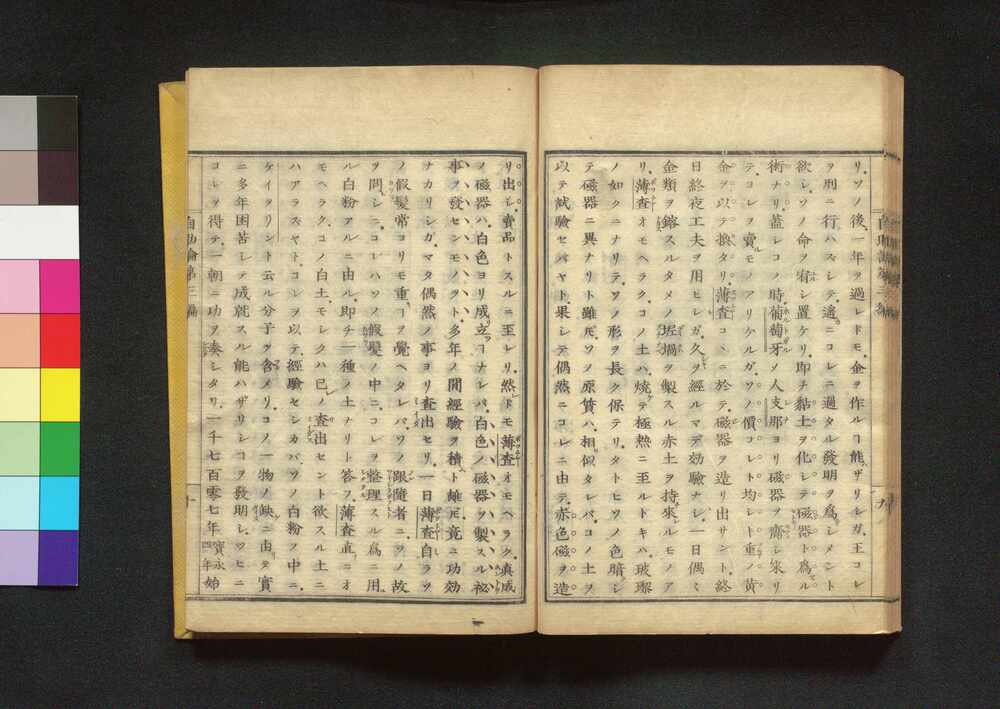 リ、ソノ後、一年ヲ過レドモ、金ヲ作ルヿ能ザリシガ、王コレ
ヲ刑ニ行ハズシテ、適ニコレニ過タル發明ヲ爲シメント
欲シ、ソノ命ヲ宥シ置ケリ、即チ黏土ヲ化シテ、磁器ト爲ル
術ナリ、蓋シコノ時葡萄牙ノ人支那ヨリ磁器ヲ齎シ來リ
テコレヲ賣モノアリケルガ、ソノ價コレト均シト重ノ黄
金ヲ以テ換タリ、薄査コヽニ於テ、磁器ヲ造リ出サント、終
日終夜工夫ヲ用ヒシガ、久ヲ經ルマデ効驗ナシ、一日偶〻
金類ヲ鎔スルタメノ坩堝ヲ製スル赤土ヲ持來ルモノア
リ、薄査オモヘラク、コノ土ハ、燒テ極熱ニ至ルトキハ、玻瓈
ノ如クニナリテ、ソノ形ヲ長ク保テリ、タトヒソノ色暗シ
テ、磁器ニ異ナリト雖𪜈、ソノ原質ハ、相似タレバ、コノ土ヲ
以テ試驗セバヤト、果シテ偶然ニコレニ由テ、赤色磁ヲ造
リ出シ、賣品トスルニ至レリ、然レドモ薄査オモヘラク、眞成
ノ磁器ハ、白色ヨリ成立ヿナレバ、百色ノ磁器ヲ製スル祕
事ヲ發センモノヲト、多年ノ間經驗ヲ積ト雖𪜈、竟ニ功効
ナカリシガ、マタ偶然ノ事ヨリ査出セリ、一日薄査自ラソ
ノ假髮常ヨリモ重キヿヲ覺ヘタレバ、ソノ跟隨者ニソノ故
ヲ問シニ、コレハソノ假髮ノ中ニ、コレヲ整理スル爲ニ用
ル白粉アルニ由ル、即チ一種ノ土ナリト答フ、薄査直ニオ
モヘラク、コノ白土、モシクハ己ノ査出セント欲スル土ニ
ハアラズヤト、コレヲ以テ、經驗セシカバ、ソノ白粉ノ中ニ、
ケイタリント云ル分子ヲ含メリ、コノ一物ノ缺ニ由テ、實
ニ多年困苦シテ成就スル能ハザリシコヲ發明シ、ツヒニ
コレヲ得テ、一朝ニ功ヲ奏シタリ、一千七百零七年寶永四年始
自助論第三編